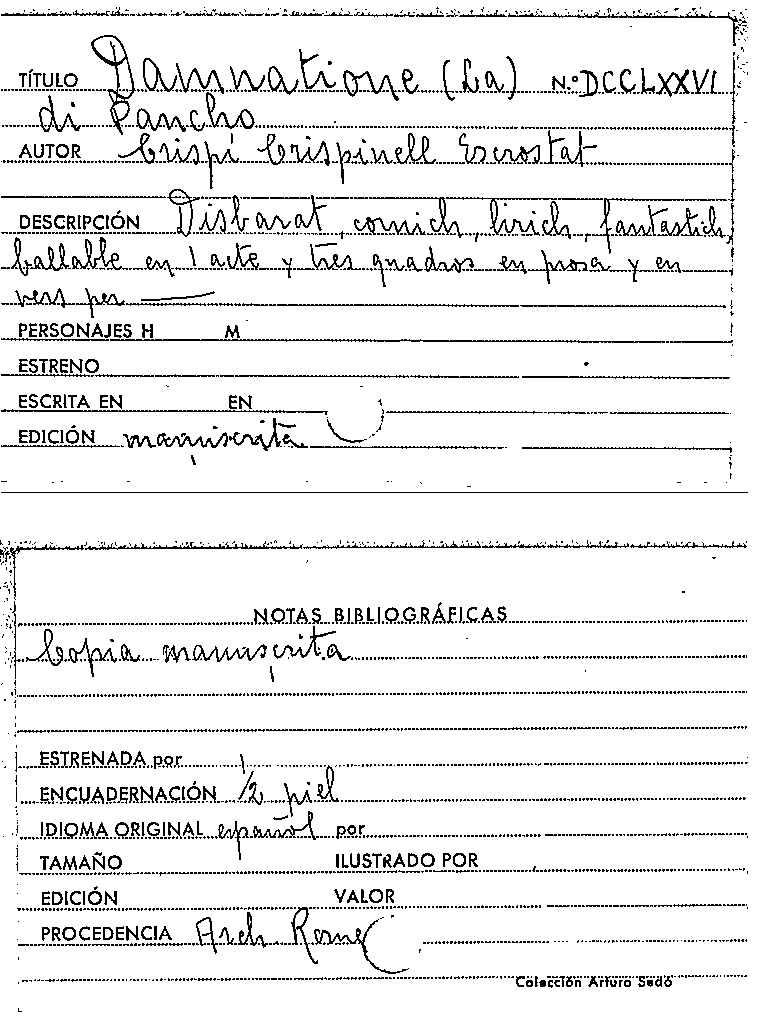 TÍTULO Damnatione (La) N.º DCCLXXVI
di Pancho
AUTOR Crispí Crispinell Escrostat
DESCRIPCIÓN Disbarat, comich, lirich, fantastich,
ballable en 1 acte y tres quadros en prosa y en
vers per ———
PERSONAJES H M
ESTRENO
ESCRITA EN EN
EDICIÓN manuscrita
NOTAS BIBLIOGRÁFICAS
Copia manuscrita
ESTRENADA por
ENCUADERNACIÓN 1/2 piel
IDIOMA ORIGINAL español por
TAMAÑO ILUSTRADO POR
EDICIÓN VALOR
PROCEDENCIA Arch.
Colección Arturo Sedó